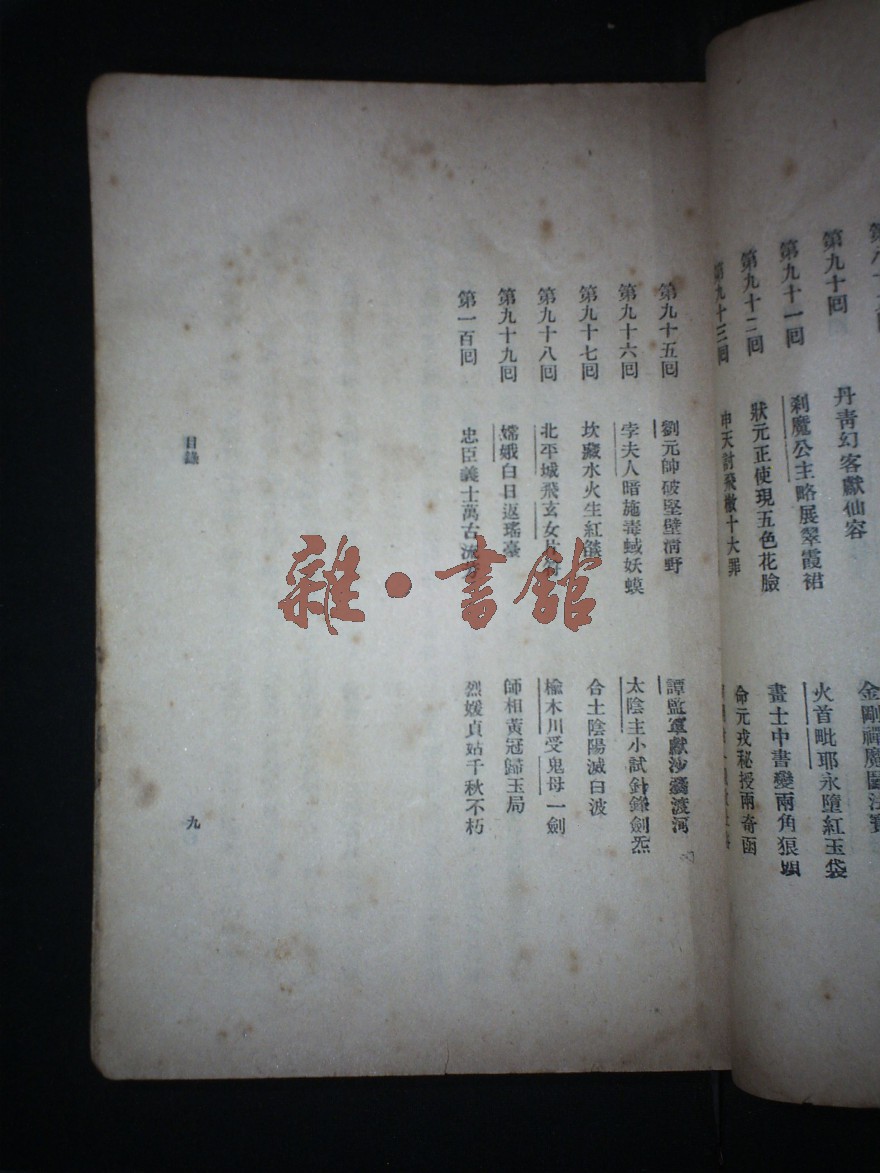 第九十回 丹青幻客獻仙容 金剛禪魔鬬法寶
第九十一回 刹魔公主略展翠霞裙 火首毗耶永墮紅玉袋
第九十二回 狀元正使現五色花臉 畫士中書變兩角狼頭
第九十三回 申天討飛檄十大罪 命元戎秘授兩奇函
第九十五回 劉元帥破堅壁清野 譚監軍獻沙囊渡河
第九十六回 孛夫人暗施毒蜮妖蟆 太陰主小試針鋒劍炁
第九十七回 坎藏水火生紅 合土陰陽滅白波
第九十八回 北平城飛玄女片 榆木川受鬼母一劍
第九十九回 嫦娥白日返瑤臺 師相黃冠歸玉局
第一百回 忠臣義士萬古流芳 烈媛貞姑千秋不朽
目錄
九
雜·書館